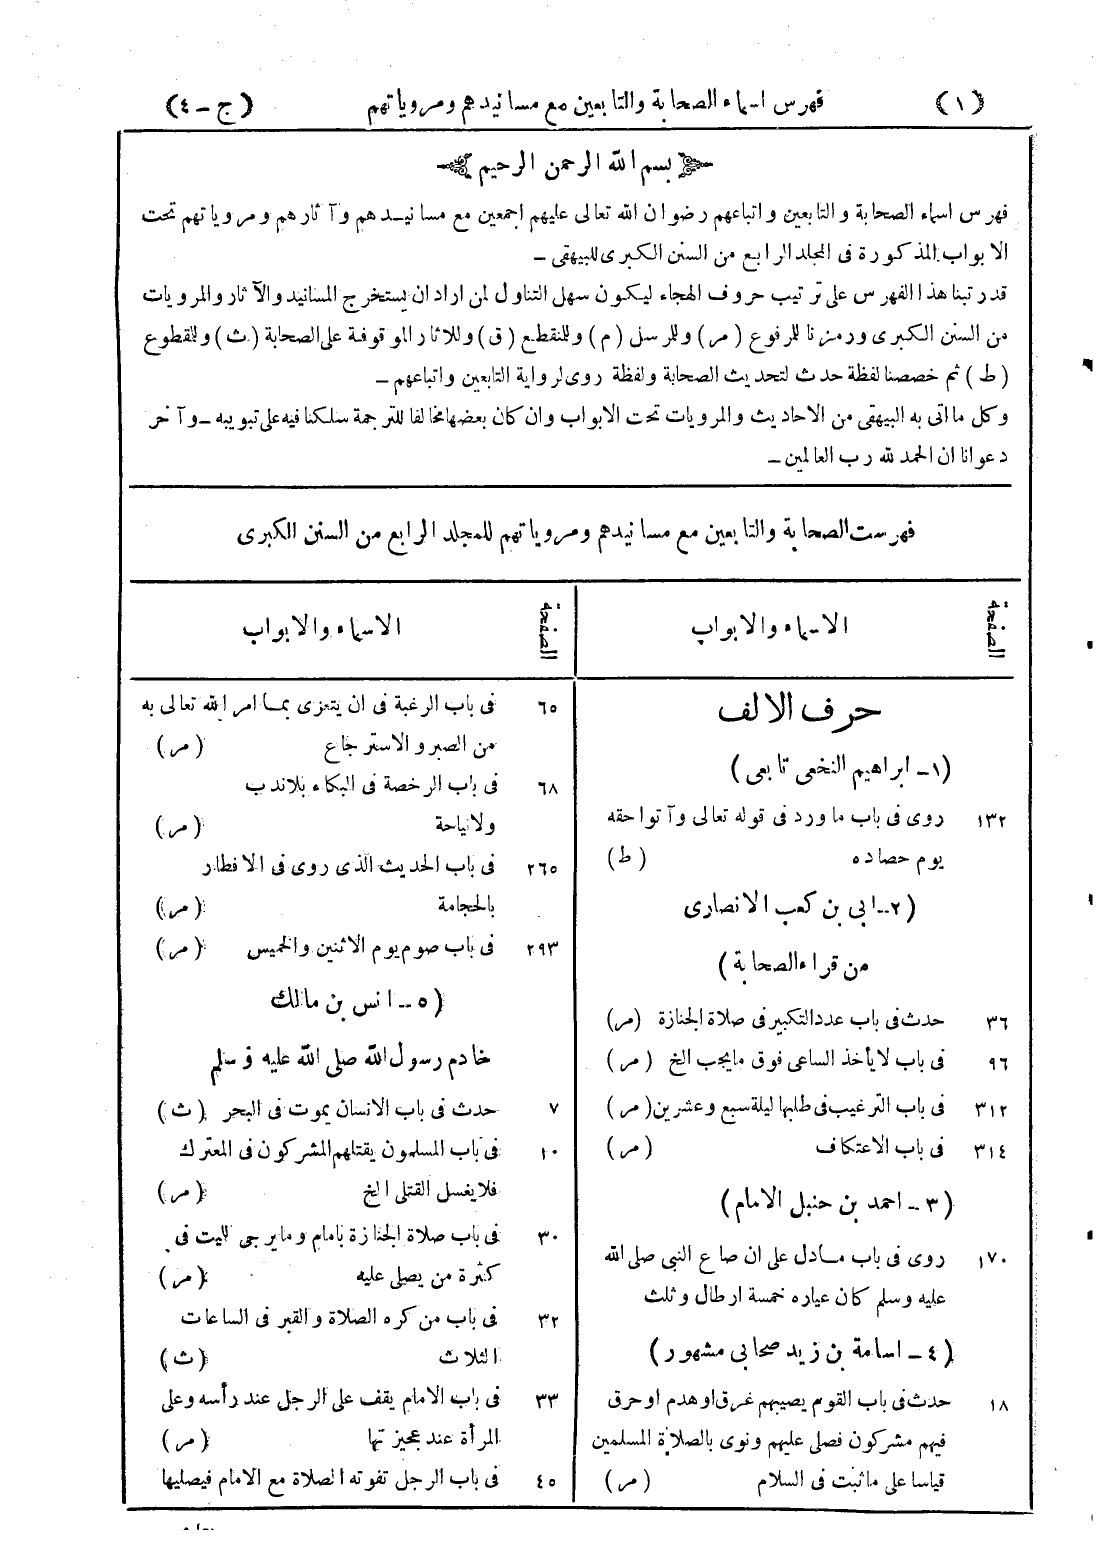 (١) فهرس اسماء الصحابة والتابعين مع مسانيدهم ومروياتهم (ج-٤)
بسم الله الرحمن الرحيم
فهرس اسماء الصحابة والتابعين واتباعهم رضوان الله تعالى عليهم اجمعين مع مسانيدهم وآثارهم ومروياتهم تحت
الابواب المذكورة فى المجلد الرابع من السنن الكبرى للبيهقى -
قدرتبنا هذا الفهرس على ترتيب حروف الهجاء ليكون سهل التناول لمن اراد ان يستخرج المسانيد والآثار والمرويات
من السنن الكبرى ورمزنا للمرفوع (مر) وللمرسل (م) وللمنقطع (ق) وللاثار الموقوفة على الصحابة (ث) وللمقطوع
(ط) ثم خصصنا لفظة حدث لتحديث الصحابة ولفظة روى لرواية التابعين واتباعهم -
وكل ما اتى به البيهقى من الاحاديث والمرويات تحت الابواب وان كان بعضها مخالفا للترجمة سلكنا فيه على تبويبه - وآخر
دعوانا ان الحمد لله رب العالمين -
فهرست الصحابة والتابعين مع مسانيدهم ومروياتهم للمجلد الرابع من السنن الكبرى
الصفحة الاسماء والابواب
حرف الالف
(١- ابراهيم النخعى تابعى)
١٣٢ روى فى باب ماورد فى قوله تعالى وآتوا حقه
يوم حصاده (ط)
(٢- ابى بن كعب الانصارى
من قراء الصحابة)
٣٦ حدث فى باب عدد التكبير فى صلاة الجنازة (مر)
٩٦ فى باب لا يأخذ الساعى فوق مايجب الخ (مر)
٣١٢ فى باب الترغيب فى طلبها ليلة سبع وعشرين (مر)
٣١٤ فى باب الاعتكاف (مر)
(٣- احمد بن حنبل الامام)
١٧٠ روى فى باب مادل على ان صاع النبى صلى الله
عليه وسلم كان عياره خمسة ارطال وثلث
(٤- اسامة بن زيد صحابى مشهور)
١٨ حدث فى باب القوم يصيبهم غرق او هدم او حرق
فيهم مشركون فصلى عليهم ونوى بالصلاة المسلمين
قياسا على ماثبت فى السلام (مر)
الصفحة الاسماء والابواب
٦٥ فى باب الرغبة فى ان يتعزى بما امر الله تعالى به
من الصبر والاسترجاع (مر)
٦٨ فى باب الرخصة فى البكاء بلاندب
ولانياحة (مر)
٢٦٥ فى باب الحديث الذى روى فى الافطار
بالحجامة (مر)
٢٩٣ فى باب صوم يوم الاثنين والخميس (مر)
(٥- انس بن مالك
خادم رسول الله صلى الله عليه وسلم
٧ حدث فى باب الانسان يموت فى البحر (ث)
١٠ فى باب المسلمون يقتلهم المشركون فى المعترك
فلايغسل القتلى الخ (مر)
٣٠ فى باب صلاة الجنازة بامام ومايرجى للميت فى
كثرة من يصلى عليه (مر)
٣٢ فى باب من كره الصلاة والقبر فى الساعات
الثلاث (ث)
٣٣ فى باب الامام يقف على الرجل عند رأسه وعلى
المرأة عند عجيزتها (مر)
٤٥ فى باب الرجل تفوته الصلاة مع الامام فيصليها